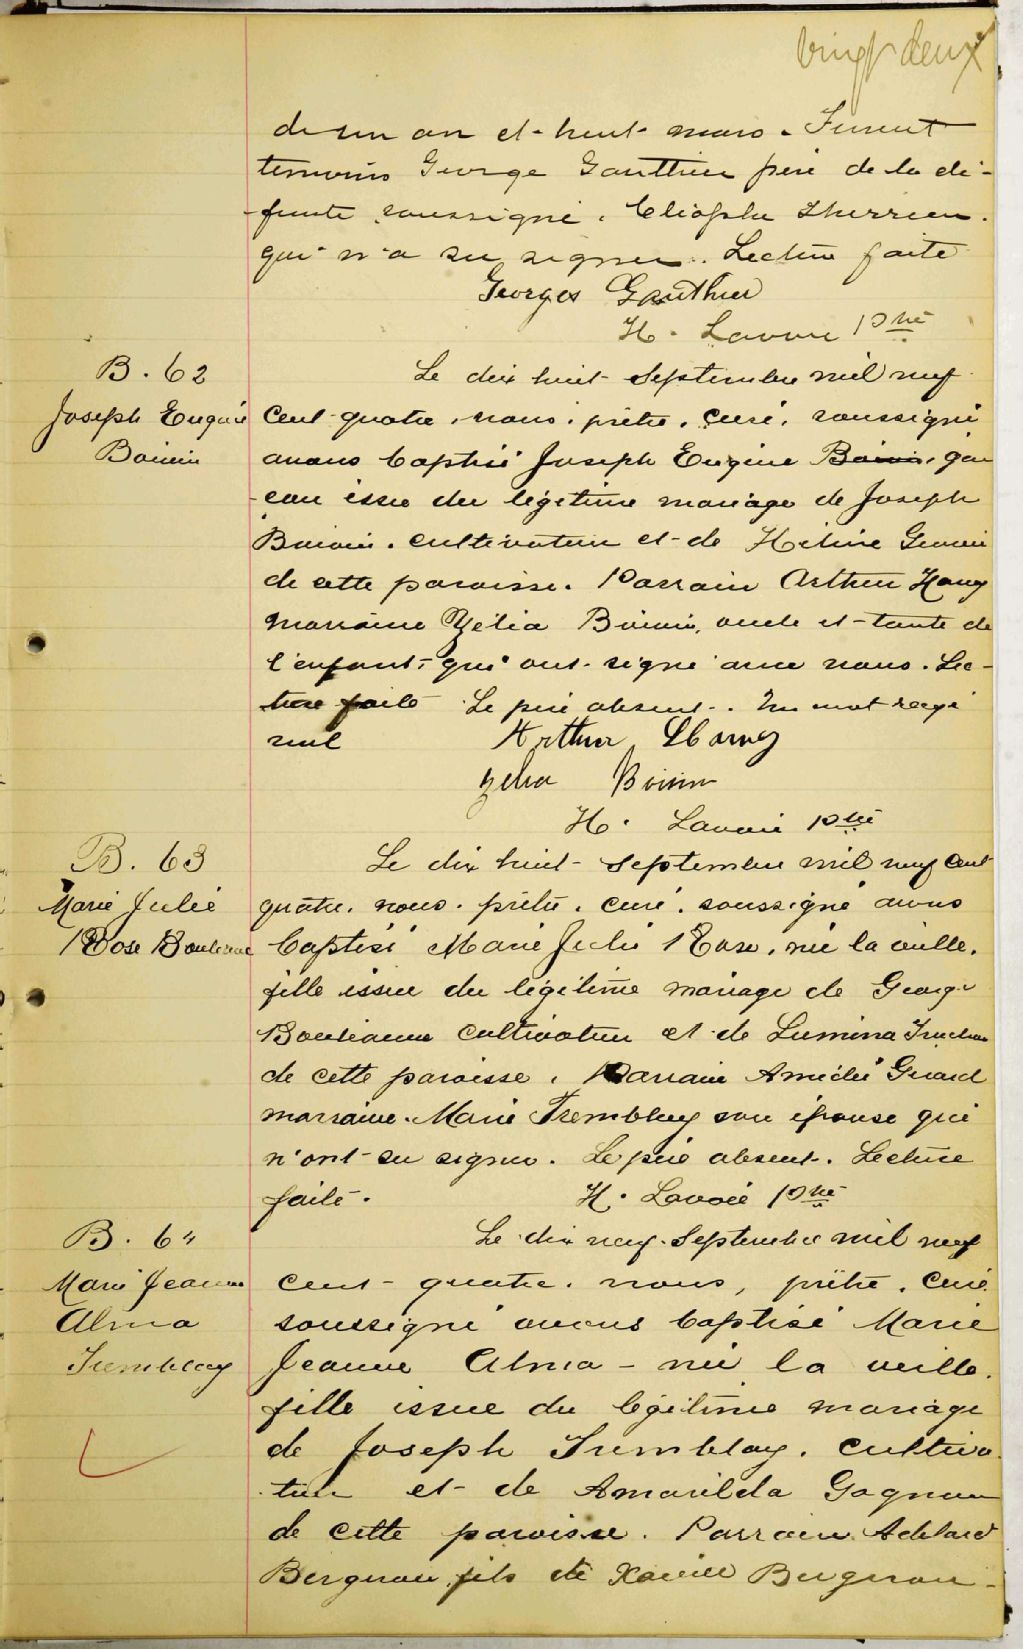 vingt deux
de un an et huit mois. Furent
temoins George Gauthier père de la dé-
funte soussigné. Cléophe Therrien.
qui n'a su signer. Lecture faite
Georges Gauthier
H. Lavoie Ptre
B. 62
Joseph Eugène
Boivin
Le dix huit Septembre mil neuf
cent quatre, nous, prêtre, curé, soussigné
avons baptisé Joseph Eugène Boivin, gar
con issu du légitime mariage de Joseph
Boivin, cultivateur et de Hélène
de cette paroisse. Parrain Arthur Harvey
marraine Zélia Boivin, oncle et tante de
l'enfant, qui ont signé avec nous. Lec-
ture faite Le père absent. Un mot rayé
nul
Arthur Harvey
Zelia Boivin
H. Lavoie Ptre
B. 63
Marie Julie
Rose Boulianne
Le dix huit Septembre mil neuf cent
quatre, nous, prêtre, curé, soussigné avons
baptisé Marie Julie Rose, née la veille,
fille issue du légitime mariage de George
Boulianne cultivateur et de Lumina Truchon
de cette paroisse. Parrain Amédée Girard
marraine. Marie Tremblay son épouse qui
n'ont su signer. Le père absent. Lecture
faite. H. Lavoie Ptre
B. 64
Marie Jeanne
Alma
Tremblay
Le dix neuf Septembre mil neuf
cent quatre, nous, prêtre, curé
soussigné avons baptisé Marie
Jeanne Alma - née la veille,
fille issue du légitime mariage
de Joseph Tremblay, cultiva
teur et de Amarilda Gagnon
de cette paroisse. Parrain Adélard
Bergeron fils de Xavier Bergeron